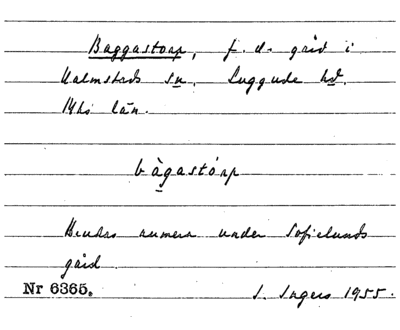 Baggastorp, f. d. gård i
Halmstads sn, Luggude hd.
Mhs län.
bàgastórp
Brukas numera under Sofielunds
gård.
Nr 6365.
S. Ingers 1955.